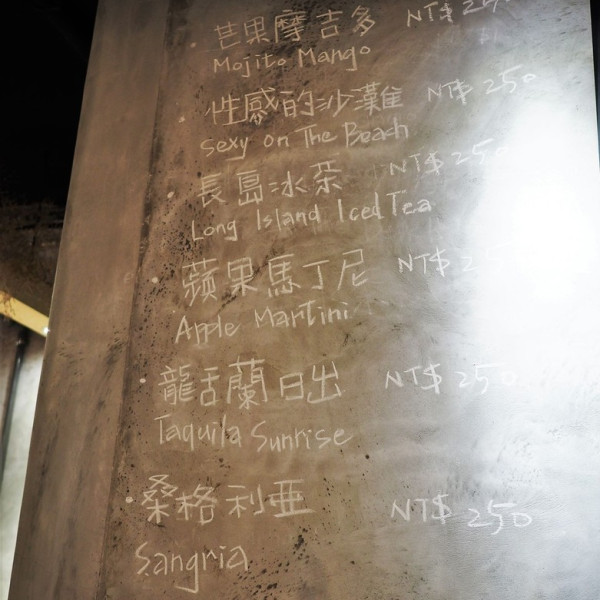 芒果摩吉多 NT$ 250
Mojito Mango
性感的沙灘 NT$ 250
Sexy on The Beach
長島冰茶 NT$ 250
Long Island Iced Tea
蘋果馬丁尼 NT$ 250
Apple Martini
龍舌蘭日出 NT$ 250
Taquila Sunrise
桑格利亞 NT$ 250
Sangria